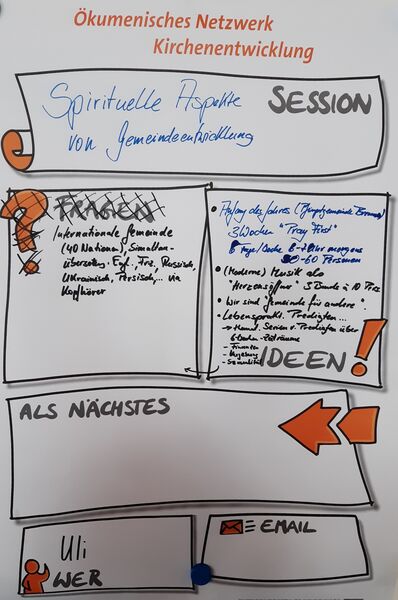 Ökumenisches Netzwerk
Kirchenentwicklung
Spirituelle Aspekte
von Gemeindeentwicklung
SESSION
FRAGEN
Internationale Gemeinde
(40 Nationen), Simultan-
übersetzung. Engl., Frz., Russisch,
Ukrainisch, Persisch,... via
Kopfhörer
Anfang des Jahres (Pfingstgemeinde
3 Wochen "Pray First"
6 Tage/Woche 6-7 Uhr morgens
-60 Personen
(Moderne) Musik als
"Herzensöffner" 3 Bands à 10 Pers
Wir sind "Gemeinde für andere".
Lebensprakt. Predigten...
Serien v. Predigten über
6 Wochen-Zeiträume
- Finanzen
- Vergebung
- Sexualität
IDEEN!
ALS NÄCHSTES
Uli
WER
EMAIL